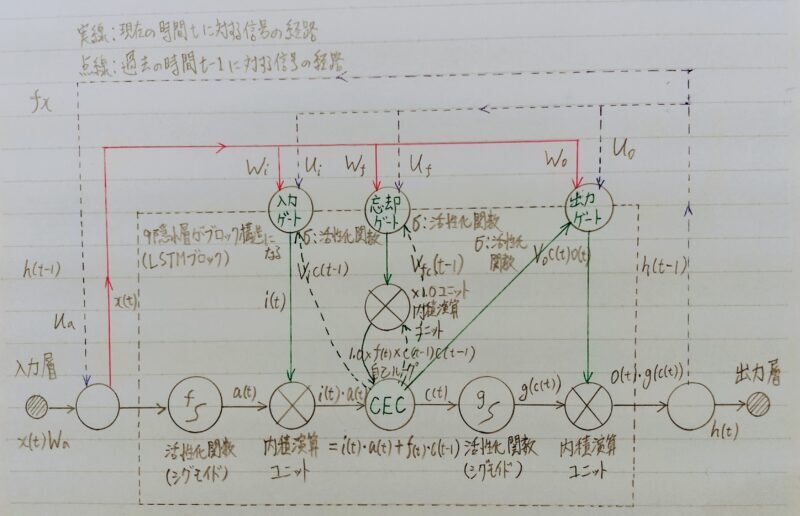 実線:現在の時間tに対する信号の経路
点線:過去の時間t-1に対する信号の経路
fx
Wi
Ui
Wf
Uf
Wo
Uo
入力
ゲート
忘却
ゲート
出力
ゲート
隠れ層がブロック構造に
なる
(LSTMブロック)
σ:活性化関数
σ:活性化関数
σ:活性化
関数
h(t-1)
x(t)
Ua
i(t)
Vic(t-1)
Vfc(t-1)
Voc(t)o(t)
h(t-1)
×1.0ユニット
内積演算
ユニット
1.0×f(t)×c(t-1)c(t-1)
自己ループ
入力層
f
a(t)
i(t)・a(t)
CEC
c(t)
g
g(c(t))
o(t)・g(c(t))
出力層
x(t)Wa
h(t)
活性化関数
(シグモイド)
内積演算
ユニット
=i(t)・a(t)+f(t)・c(t-1)
活性化関数
(シグモイド)
内積演算
ユニット